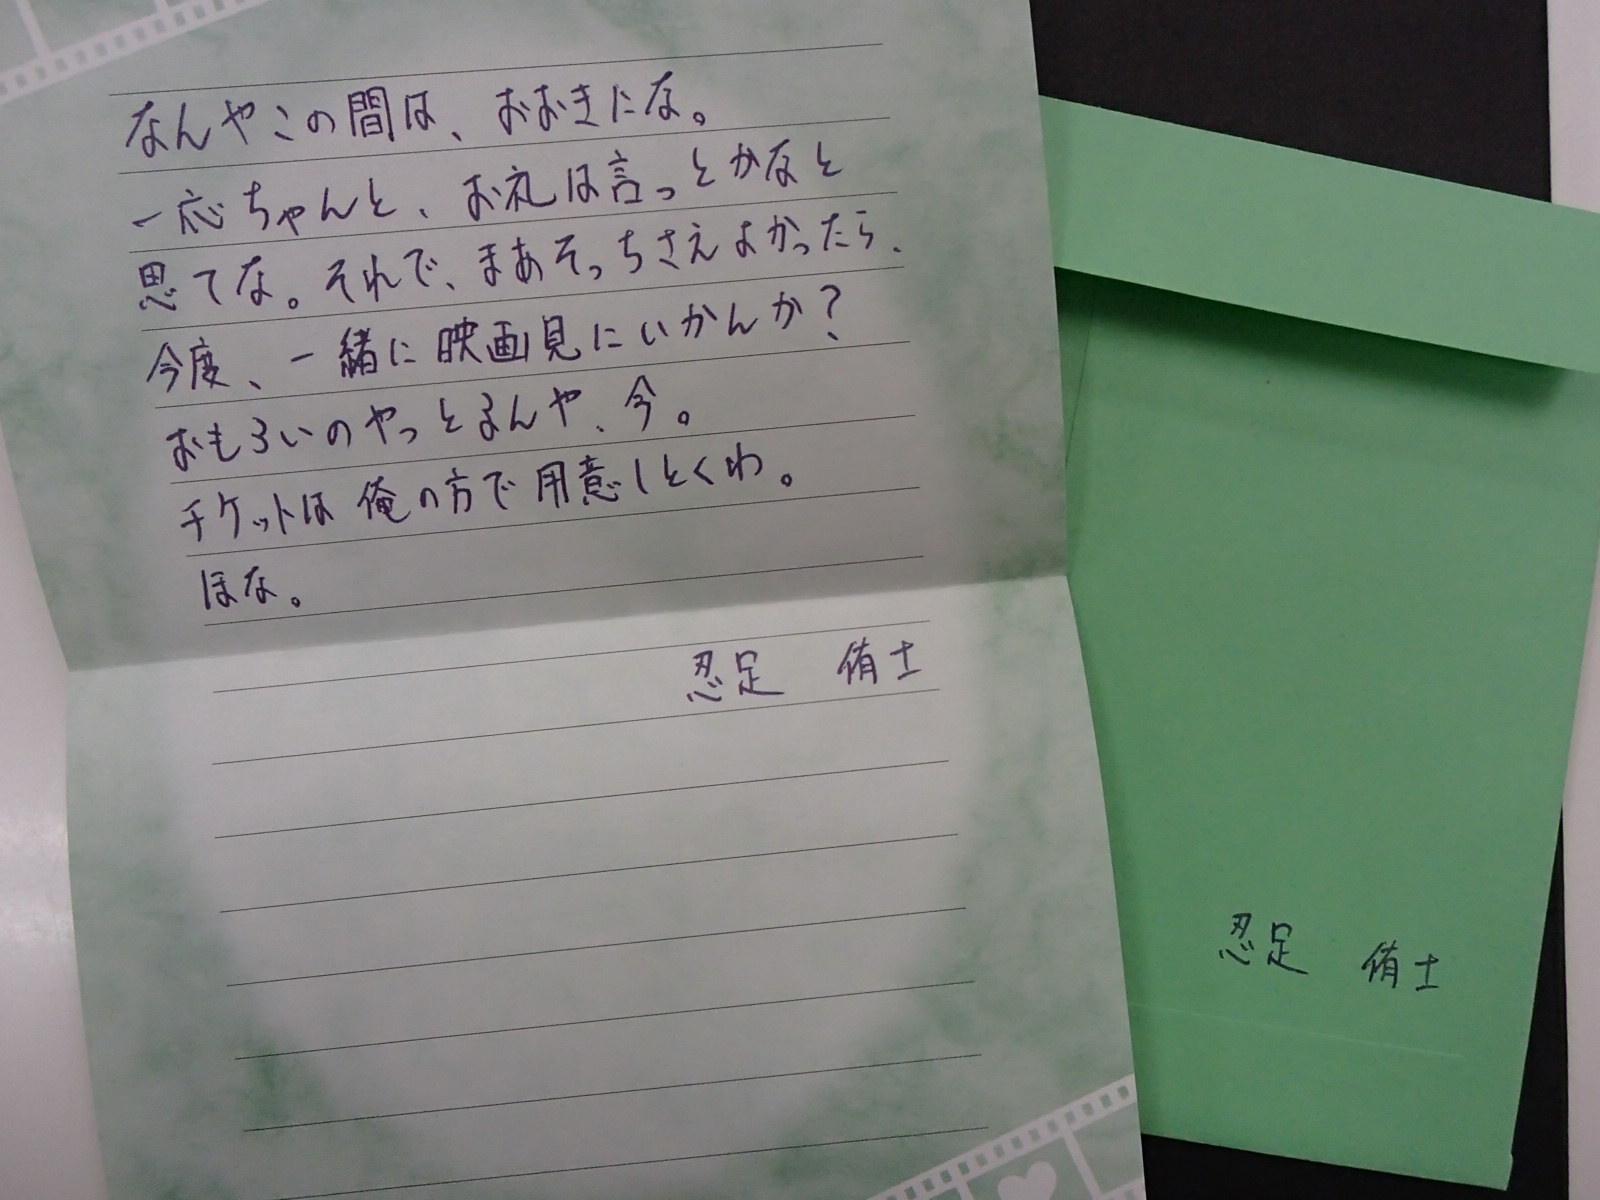 なんやこの間は、おおきにな。
一応ちゃんと、お礼は言っとかなと
思てな。それで、まあそっちさえよかったら、
今度、一緒に映画見にいかんか？
おもろいのやっとるんや、今。
チケットは俺の方で用意しとくわ。
ほな。
忍足 侑士
忍足 侑士